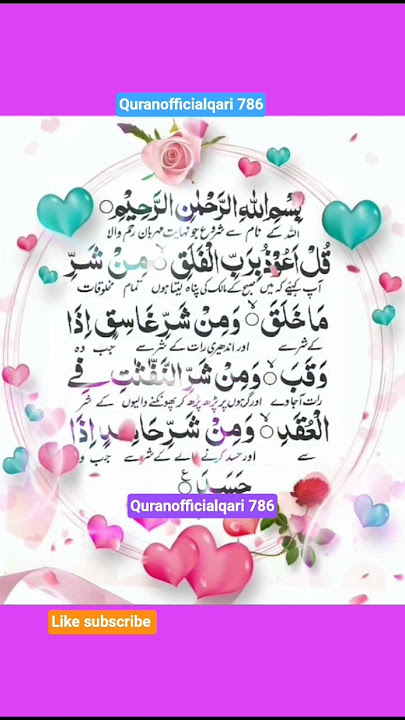 Quranofficialqari 786
بِسْمِ اللهِ الرَّحْمٰنِ الرَّحِيْمِ
اللہ کے نام سے شروع جو نہایت مہربان رحم والا
قُلْ اَعُوْذُ بِرَبِّ الْفَلَقِ ۙ مِنْ شَرِّ
آپ کہیئے کہ میں صبح کے مالک کی پناہ لیتا ہوں تمام مخلوقات
مَا خَلَقَ ۙ وَمِنْ شَرِّ غَاسِقٍ اِذَا
کے شر سے اور اندھیری رات کے شر سے جب وہ
وَقَبَ ۙ وَمِنْ شَرِّ النَّفّٰثٰتِ فِي
رات آجاوے اور گرہوں پر پڑھ پڑھ کر پھونکنے والیوں کے شر
الْعُقَدِ ۙ وَمِنْ شَرِّ حَاسِدٍ اِذَا
سے اور حسد کرنے والے کے شر سے جب وہ
حَسَدَ
Quranofficialqari 786
Like subscribe